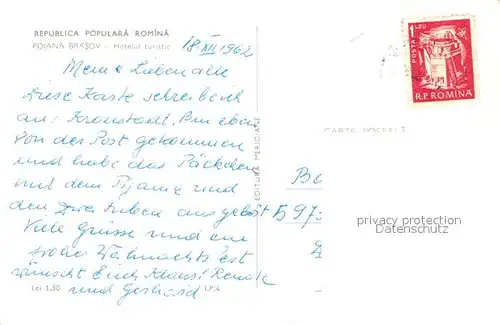 REPUBLICA POPULARĂ ROMÎNĂ
POIANA BRAȘOV – Hotelul turistic
18.XII.1962
Meine Lieben alle
Diese Karte schreibe ich
aus Kronstadt. Bin eben
von der Post gekommen
und habe das Päckchen
mit dem Pijama und
den zwei ausgelöst
Viele Grüsse und ein
frohes Weihnachtsfest
wünscht Euch Klaus Renate
und Gerhard
Lei 1,30 I.P.4
EDITURA MERIDIANE
POSTA 1 LEU
R.P.ROMINA
CARTE POSTALĂ
B 97
privacy protection
Datenschutz